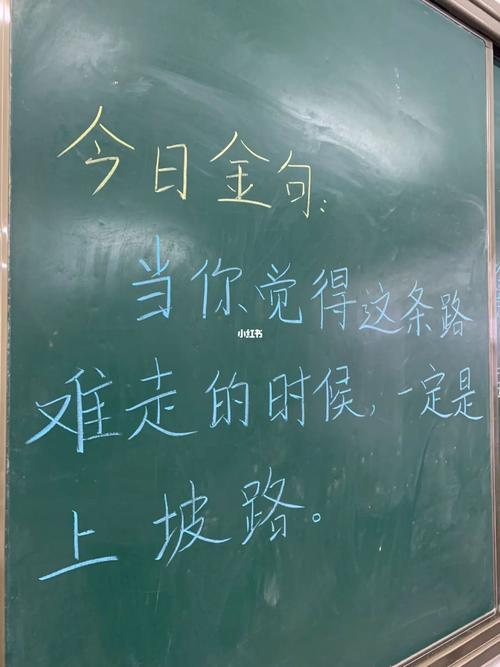 今日金句:
当你觉得这条路
小红书
难走的时候,一定是
上坡路。